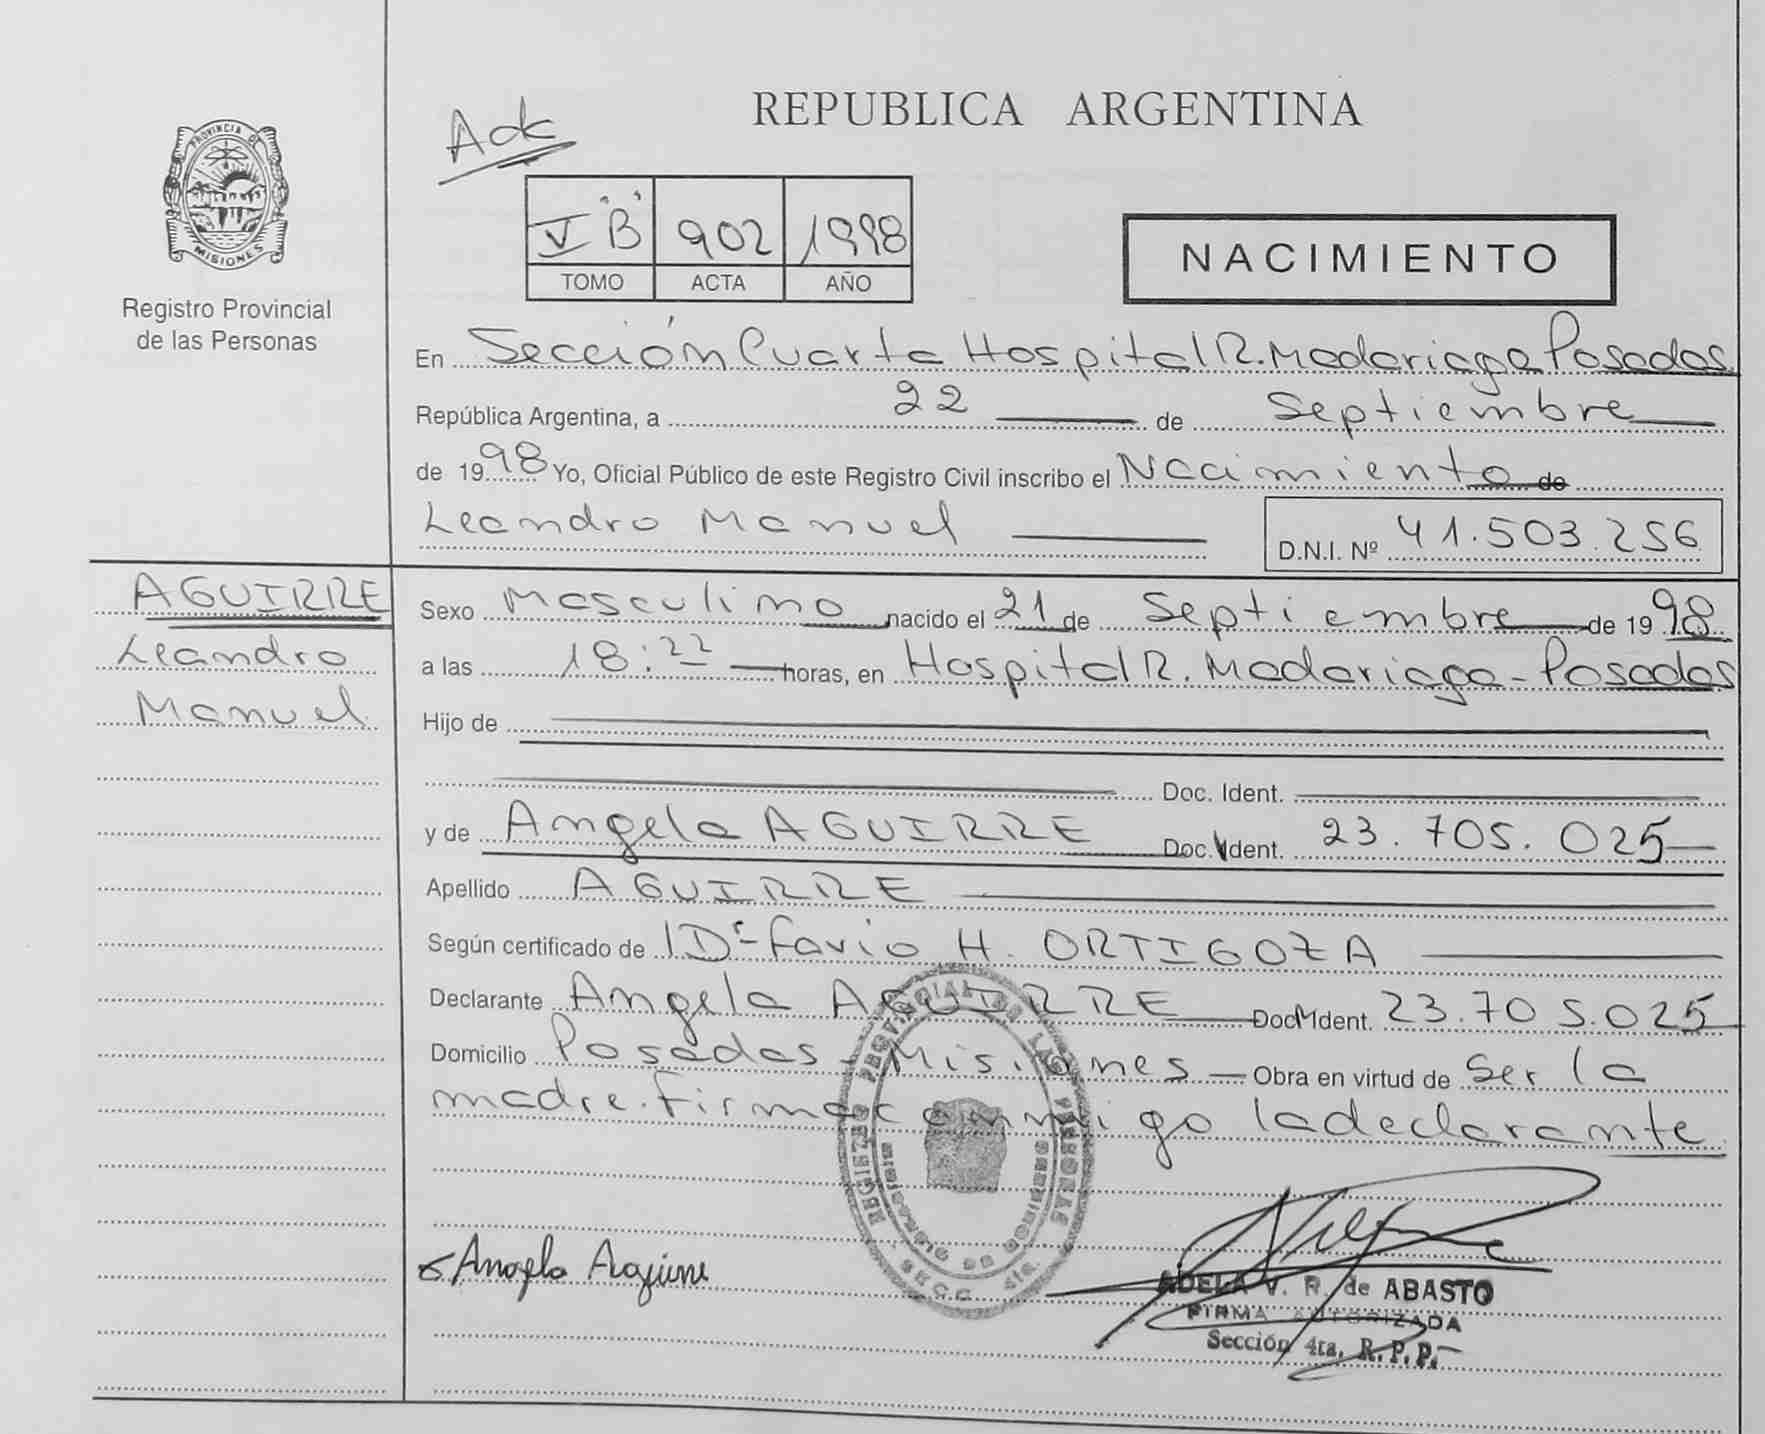 REPUBLICA ARGENTINA
PROVINCIA DE
MISIONES
Registro Provincial
de las Personas
V "B" 902 1998
TOMO ACTA AÑO
NACIMIENTO
En Sección Cuarta Hospital R. Madariaga Posadas
República Argentina, a 22 de Septiembre
de 1998 Yo, Oficial Público de este Registro Civil inscribo el Nacimiento de
Leandro Manuel
D.N.I. Nº 41.503.256
AGUIRRE
Leandro
Manuel
Sexo Masculino nacido el 21 de Septiembre de 1998
a las 18:22 horas, en Hospital R. Madariaga - Posadas
Hijo de
Doc. Ident.
y de Angela AGUIRRE Doc. Ident. 23.705.025
Apellido AGUIRRE
Según certificado de Dr Favio H. ORTIGOZA
Declarante Angela AGUIRRE Doc. Ident. 23.705.025
Domicilio Posadas - Misiones Obra en virtud de Ser la
madre. Firma conmigo la declarante
REGISTRO PROVINCIAL DE LAS PERSONAS
SECC. 4ta.
Angela Aguirre
ADELA V. R. de ABASTO
FIRMA AUTORIZADA
Sección 4ta. R. P. P.